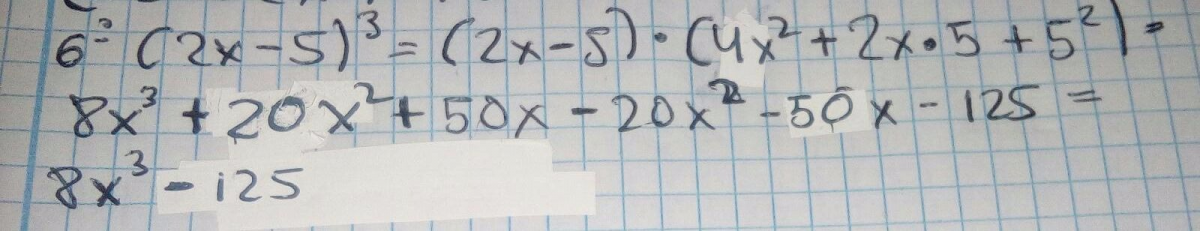 6) (2x-5)³ = (2x-5)·(4x²+2x·5+5²) =
8x³+20x²+50x-20x²-50x-125 =
8x³-125